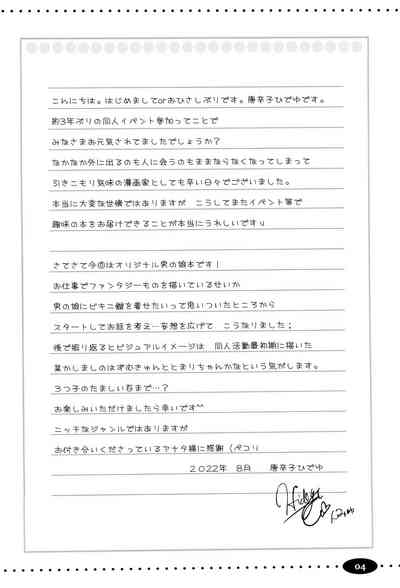 こんにちは。はじめましてorおひさしぶりです。唐辛子ひでゆです。
約3年ぶりの同人イベント参加ってことで
みなさまお元気されてましたでしょうか?
なかなか外に出るのも人に会うのもままならなくなってしまって
引きこもり気味の漫画家としても辛い日々でございました。
本当に大変な世情ではありますが こうしてまたイベント等で
趣味の本をお届けできることが本当にうれしいです
さてさて今回はオリジナル男の娘本です!
お仕事でファンタジーものを描いているせいか
男の娘にビキニ鎧を着せたいって思いついたところから
スタートしてお話を考え…妄想を広げて こうなりました;
後で振り返るとビジュアルイメージは 同人活動最初期に描いた
某かしましのはずむきゅんととまりちゃんかなという気がします。
3つ子のたましい百まで…?
お楽しみいただけましたら幸いです^^
ニッチなジャンルではありますが
お付き合いくださっているアナタ様に感謝(ペコリ
2022年 8月 唐辛子ひでゆ
04